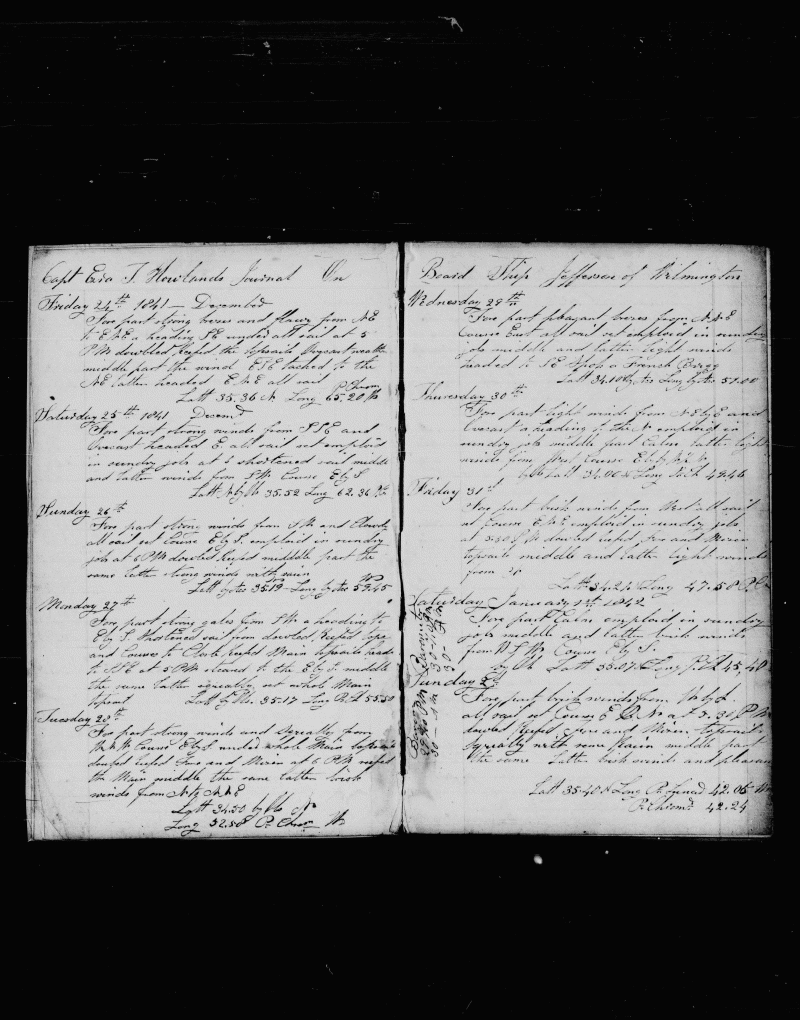 Capt Ezra T. Howlands Journal On
Friday 24th 1841 — December
Fore part strong breeze and flawy from N.E
to E.N.E. a heading S.E under all sail at 5
P.M. dowbled Reefed the topsails Overcast weather
middle part the wind E.S.E tacked to the
N.E latter headed E.N.E all sail
P. Chrom
Latt 35.36 N Long 65.20 W
Saturday 25th 1841 Decemr
Fore part strong winds from S.S.E and
Overcast headed E. all sail set employed
in sundry jobs at 5 shortened sail middle
and latter winds from S.W. Course E by S
Latt N by Obs 35.52 Long 62.36 W
Sunday 26th
Fore part strong winds from S.W and Cloudy
all sail set Course E by S. employed in sundry
jobs at 6 P.M dowbled Reefed middle part the
same latter strong winds with rain
Latt by Obs 35.19 Long by Obs 59.45 W
Monday 27th
Fore part strong gales from S.W a heading to
E by S. Shortened sail from dowbled Reefed tops
and Course to Close Reefed Main topsails heads
to S.S.E at 5 P.M cleared to the E by S. middle
the same latter squally set whole Main
topsail Latt by Obs. 35.17 Long P. Ch 55.50
Tuesday 28th
Fore part strong winds and squally from
W.N.W Course E by S under whole Main topsail
doubed reefed Fore and Mizen at 6 P.M reefed
the Main middle the same latter brisk
winds from N.W. N.N.E
Latt 34.50 by Obs N
Long 52.58 P. Chrom W
Board Ship Jefferson of Wilmington
Wednesday 29th
Fore part pleasant breezes from N.N.E
Course East all sail set employed in sundry
jobs middle and latter light winds
headed to S.E. Spok a French Brigg
Latt 34.10 by Obs Long by Obs 51.00
Thursday 30th
Fore part light winds from N.E by E and
Overcast a heading to the N. employed in
sundry jobs middle part Calm latter light
winds from West Course E by N
Obs Latt 34.00 N Long 49.46
Friday 31st
Fore part brisk winds from West all sail
set Course E.N.E employed in sundry jobs
at 5.30 P.M dowbled reefed Fore and Mizen
topsails middle and latter light winds
from
Latt 34.21 N Long 47.58 P.C
Saturday January 1st 1842
Fore part Calm employed in sundry
jobs middle and latter brisk winds
from W.S.W. Course E by S.
by Ob Latt 35.07 N Long P. Ch 45,40
Sunday 2d
Fore part brisk winds from W by S
all sail set Course E at 5.30 P.M
dowbled Reefed Fore and Mizen topsails
squally with some rain middle part
the same latter brisk winds and pleasant
Latt 35.40 N Long P. 42.06 W
P. Chromr 42.24